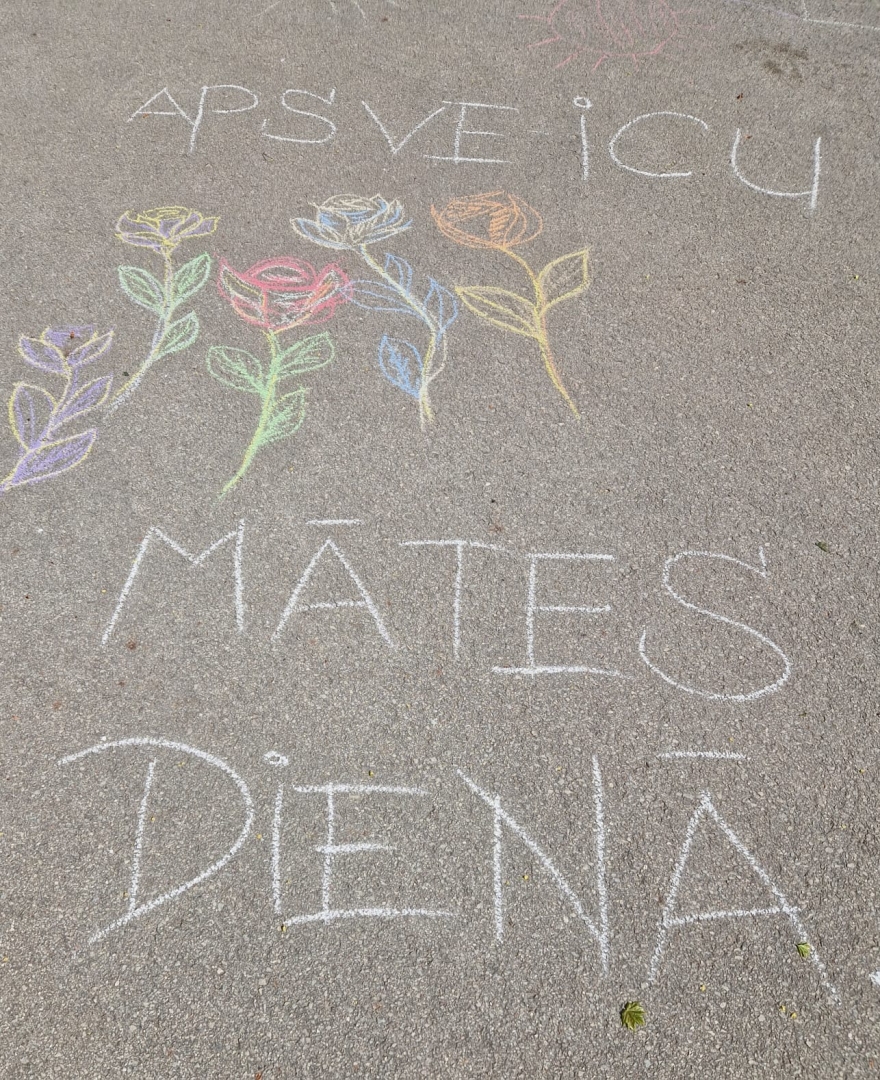 APSVEiCU
MĀTES
DiENĀ